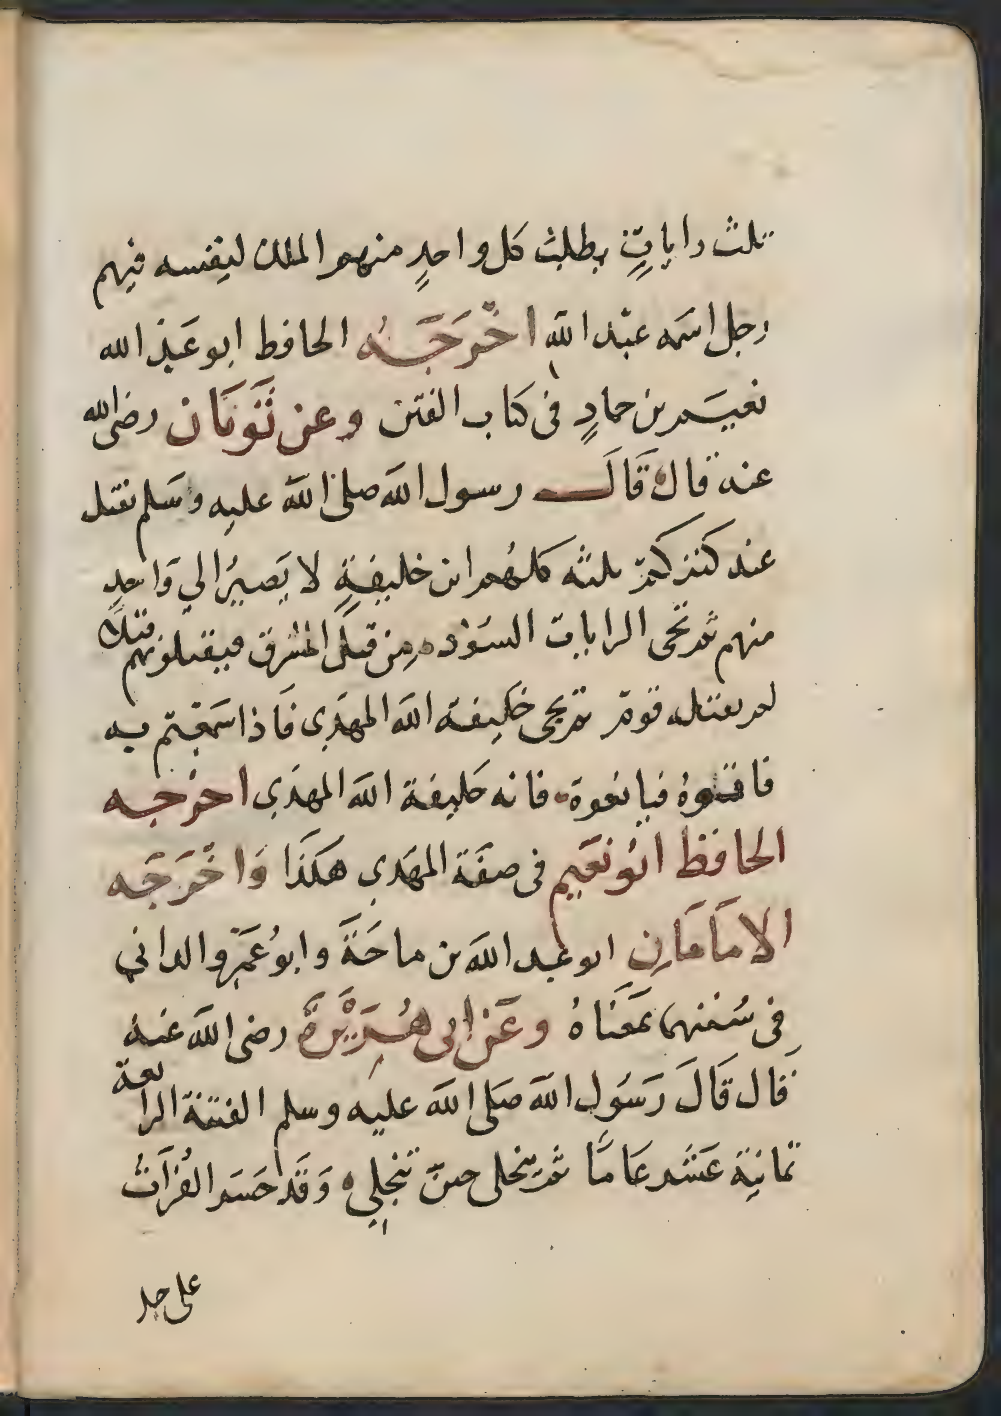 ثلث رايات يطلب كل واحدٍ منهم الملك لنفسه فيهم
رجل اسمه عبد الله اخْرَجَه الحافظ ابو عبد الله
نعيم بن حمادٍ فى كتاب الفتن وعن ثَوبَان رضى الله
عنه قال قَالَ رسول الله صلى الله عليه وسَلم يقتل
عند كنزكم ثلثه كلهُم ابن خليفةٍ لا يَصيرُ الي وَاحدٍ
منهم ثم تجى الرايات السوُد من قبَل المشرق فيقتلونهم قتلًا
لم يقتله قومٌ ثم يجى خَليفة الله المهدَى فَاذا سمَعتم به
فاتوهُ فبايعوه فانه خليفة الله المهدَى اخرَجه
الحافظ ابُو نعَيم فى صفَة المهَدى هكَذَا وَاخْرَجَه
الامَامَان ابو عبد الله بن ماجَةَ وابوُ عَمرٍو الدانى
فى سُننهما بمَعَناهُ وعَن ابى هُرَيْرَةَ رضى الله عنهُ
قال قَالَ رَسوُل الله صَلى الله عليه وسلم الفتنة الرابعة
ثمانية عَشر عَامًا ثم ينجلى حين تنجلى وَقَد حَسَر الفُراتُ
على جبل